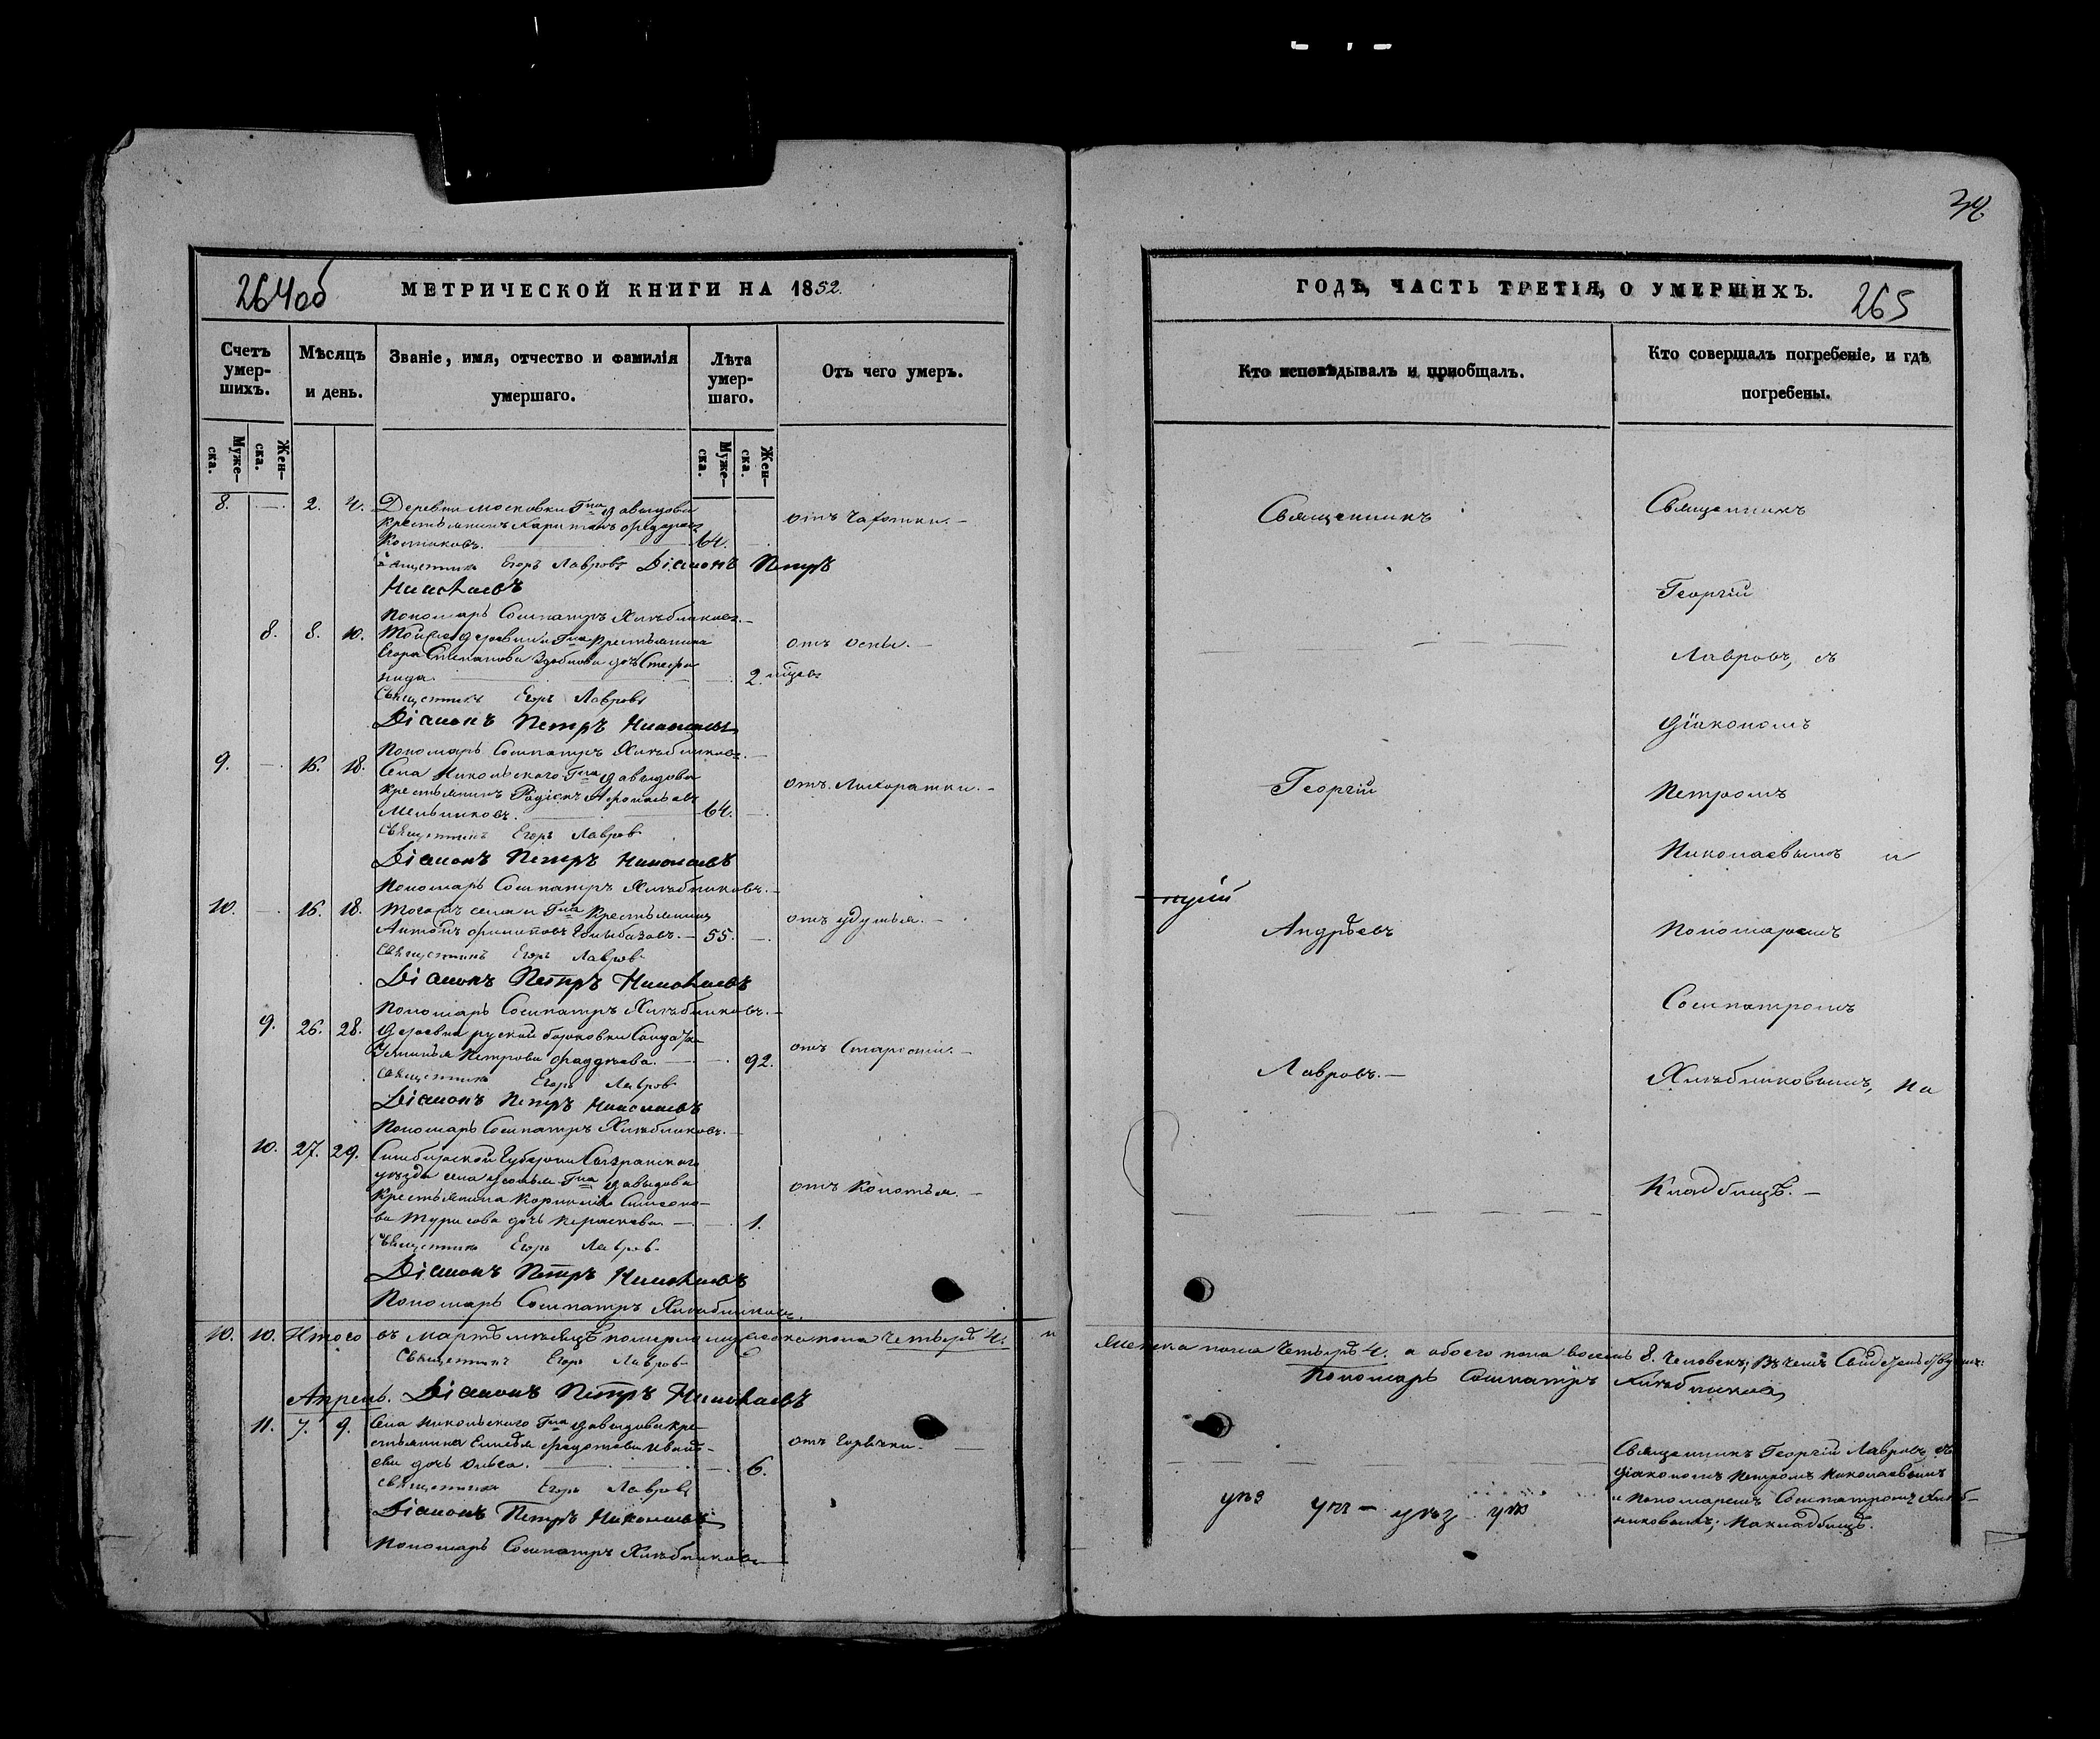 264об
МЕТРИЧЕСКОЙ КНИГИ НА 1852.
Счетъ умер-шихъ.
Мѣсяцъ и день.
Званіе, имя, отчество и фамилія умершаго.
Лѣта умер-шаго.
Отъ чего умеръ.
Муже-ска.
Жен-ска.
Муже-ска.
Жен-ска.
8. — 2. 4. Деревни Московки Гна Давыдова
крестьянинъ Харитонъ
64. —
отъ Чахотки. —
Священникъ Егоръ Лавровъ Діаконъ Петръ
Николаевъ
Пономарь Сосипатръ Хлѣбниковъ. —
8. 8. 10. Той же деревни и Гна крестьянина
Егора Степанова дочь Стефа-
нида. — 2.
отъ Оспы. —
Священникъ Егоръ Лавровъ
Діаконъ Петръ Николаевъ
Пономарь Сосипатръ Хлѣбниковъ. —
9. — 16. 18. Села Никольскаго Гна Давыдова
крестьянинъ Родіонъ
Мельниковъ. — 64. —
отъ Лихорадки. —
Священникъ Егоръ Лавровъ
Діаконъ Петръ Николаевъ
Пономарь Сосипатръ Хлѣбниковъ. —
10. — 16. 18. Тогожъ села и Гна крестьянинъ
Антонъ Филиповъ — 55. —
отъ удушья. —
Священникъ Егоръ Лавровъ
Діаконъ Петръ Николаевъ
Пономарь Сосипатръ Хлѣбниковъ. —
9. 26. 28. Деревни руской борковки
Петрова Фаддѣева. — 92.
отъ Старости. —
Священникъ Егоръ Лавровъ
Діаконъ Петръ Николаевъ
Пономарь Сосипатръ Хлѣбниковъ. —
10. 27. 29. Симбирской Губерніи Сызранскаго
уѣзда села Усолья Гна Давыдова
крестьянина Корнилія Симео-
дочь Параскева. — 1.
отъ Колотья. —
Священникъ Егоръ Лавровъ
Діаконъ Петръ Николаевъ
Пономарь Сосипатръ Хлѣбниковъ.
10. 10. Итого въ Мартѣ мѣсяцѣ померло мужеска пола четыре 4. и
Священникъ Егоръ Лавровъ
Апрель. Діаконъ Петръ Николаевъ
11. 7. 9. Села Никольскаго Гна Давыдова кре-
стьянина Федотова
дочь — 6.
отъ Горячки. —
Священникъ Егоръ Лавровъ
Діаконъ Петръ Николаевъ
Пономарь Сосипатръ Хлѣбниковъ
34
ГОДѢ, ЧАСТЬ ТРЕТІЯ, О УМЕРШИХЪ.
265
Кто исповѣдывалъ и пріобщалъ.
Кто совершалъ погребеніе, и гдѣ погребены.
Священникъ
Священникъ
Георгій
Лавровъ, съ
Діакономъ
Георгій
Петромъ
Николаевымъ и
Андрѣевъ
Пономаремъ
Сосипатромъ
Лавровъ. —
Хлѣбниковымъ, на
Кладбищѣ. —
Женска пола четыре 4. а обоего пола восемь 8. человекъ; въ чемъ Свидѣтельствуемъ:
Пономарь Сосипатръ Хлѣбниковъ
Священникъ Георгій Лавровъ, съ
Діакономъ Петромъ Николаевымъ
и Пономаремъ Сосипатромъ Хлѣб-
никовымъ; на кладбищѣ.